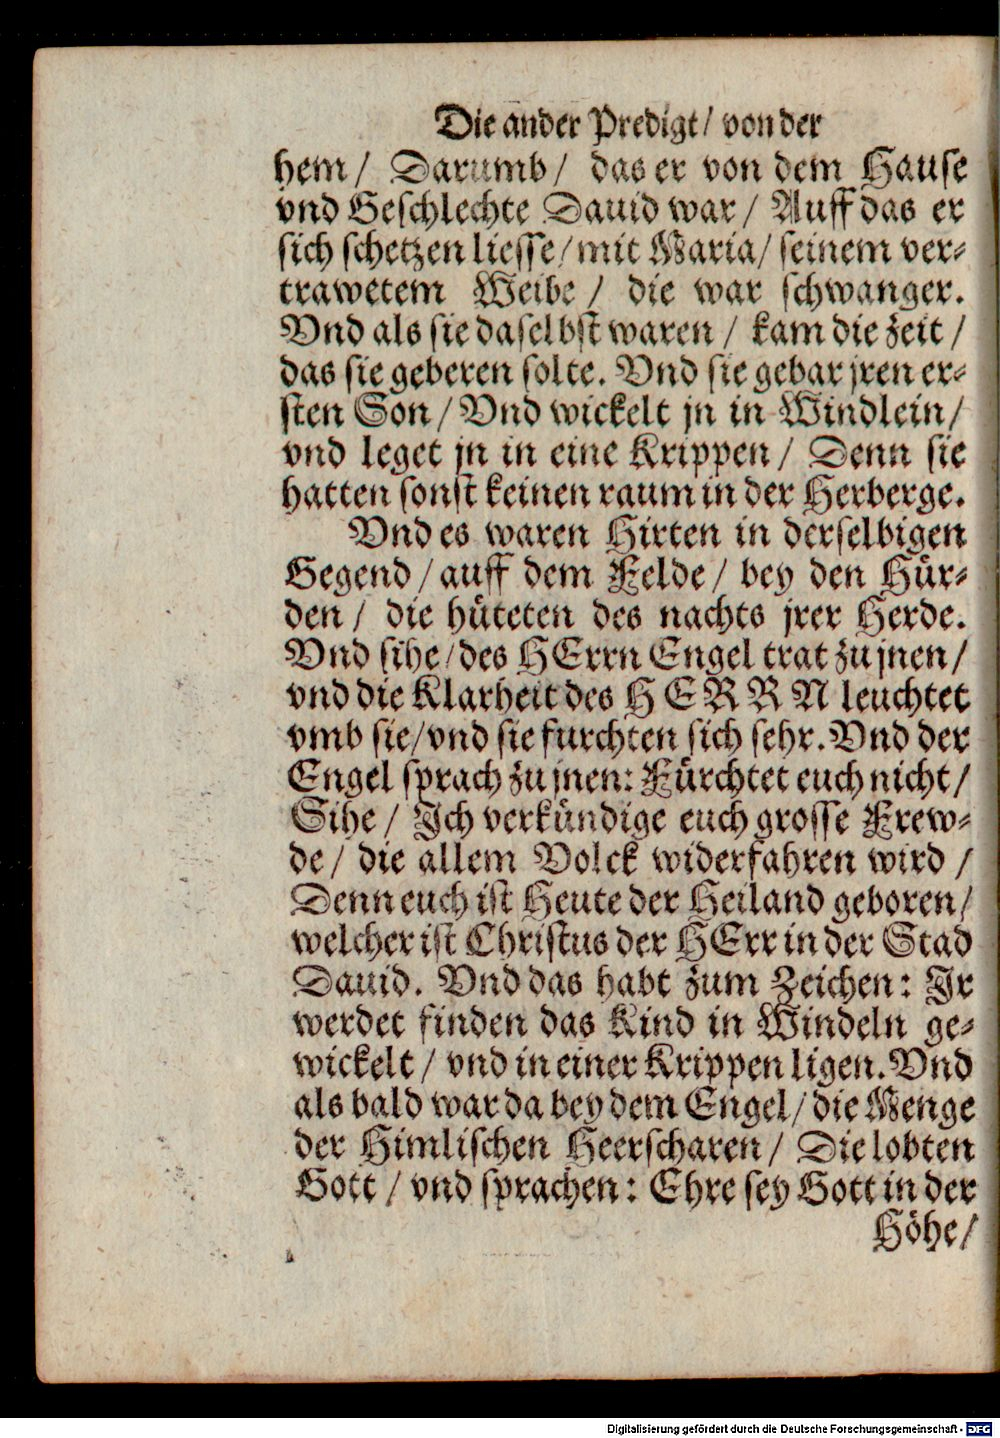 Die ander Predigt / von der
hem / Darumb / das er von dem Hause
vnd Geschlechte Dauid war / Auff das er
sich schetzen liesse / mit Maria / seinem ver-
trawetem Weibe / die war schwanger.
Vnd als sie daselbst waren / kam die zeit /
das sie geberen solte. Vnd sie gebar jren er-
sten Son / Vnd wickelt jn in Windlein /
vnd leget jn in eine Krippen / Denn sie
hatten sonst keinen raum in der Herberge.
Vnd es waren Hirten in derselbigen
Gegend / auff dem Felde / bey den Hür-
den / die hüteten des nachts jrer Herde.
Vnd sihe / des HErrn Engel trat zu jnen /
vnd die Klarheit des HERRN leuchtet
vmb sie / vnd sie furchten sich sehr. Vnd der
Engel sprach zu jnen: Fürchtet euch nicht /
Sihe / Ich verkündige euch grosse Frew-
de / die allem Volck widerfahren wird /
Denn euch ist Heute der Heiland geboren /
welcher ist Christus der HErr in der Stad
Dauid. Vnd das habt zum Zeichen: Ir
werdet finden das Kind in Windeln ge-
wickelt / vnd in einer Krippen ligen. Vnd
als bald war da bey dem Engel / die Menge
der Himlischen Heerscharen / Die lobten
Gott / vnd sprachen: Ehre sey Gott in der
Höhe /
Digitalisierung gefördert durch die Deutsche Forschungsgemeinschaft - DFG